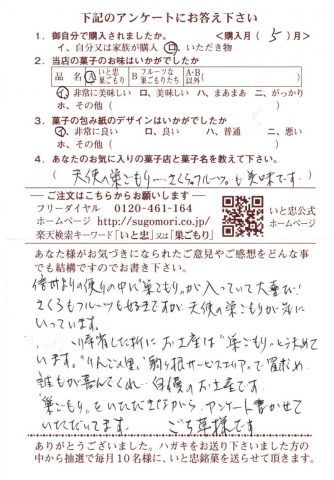 下記のアンケートにお答え下さい
1. 御自分で購入されましたか。 <購入月( 5 )月>
イ、自分又は家族が購入 ロ、いただき物
2. 当店の菓子のお味はいかがでしたか
品名 A いと忠巣ごもり B フルーツな巣ごもりたち A・B以外( )
イ、非常に美味しい ロ、美味しい ハ、まあまあ ニ、がっかり
ホ、その他( )
3. 菓子の包み紙のデザインはいかがでしたか
イ、非常に良い ロ、良い ハ、普通 ニ、悪い
ホ、その他( )
4. あなたのお気に入りの菓子店と菓子名を教えて下さい。
( 天使の巣ごもり…さくら。フルーツ。も美味です。 )
―ご注文はこちらからお願いします―
フリーダイヤル 0120-461-164
ホームページ http://sugomori.co.jp/
楽天検索キーワード「いと忠」又は「巣ごもり」
いと忠公式
ホームページ
あなた様がお気づきになられたご意見やご感想をどんな事
でも結構ですのでお書き下さい。
の便りの中に"巣ごもり"が入っていて大喜び!
さくらもフルーツも好きですが天使の巣ごもりが気に
いっています。
お土産は"巣ごもり"と決めて
います。"りんごの里"駒ヶ根サービスエリア"で買求め
誰もが喜んでくれ 自慢のお土産です。
"巣ごもり"をいただきながら アンケート書かせて
いただいてます。 ごち草様です
ありがとうございました。ハガキをお送り下さいました方の
中から抽選で毎月10名様に、いと忠銘菓を送らせて頂きます。